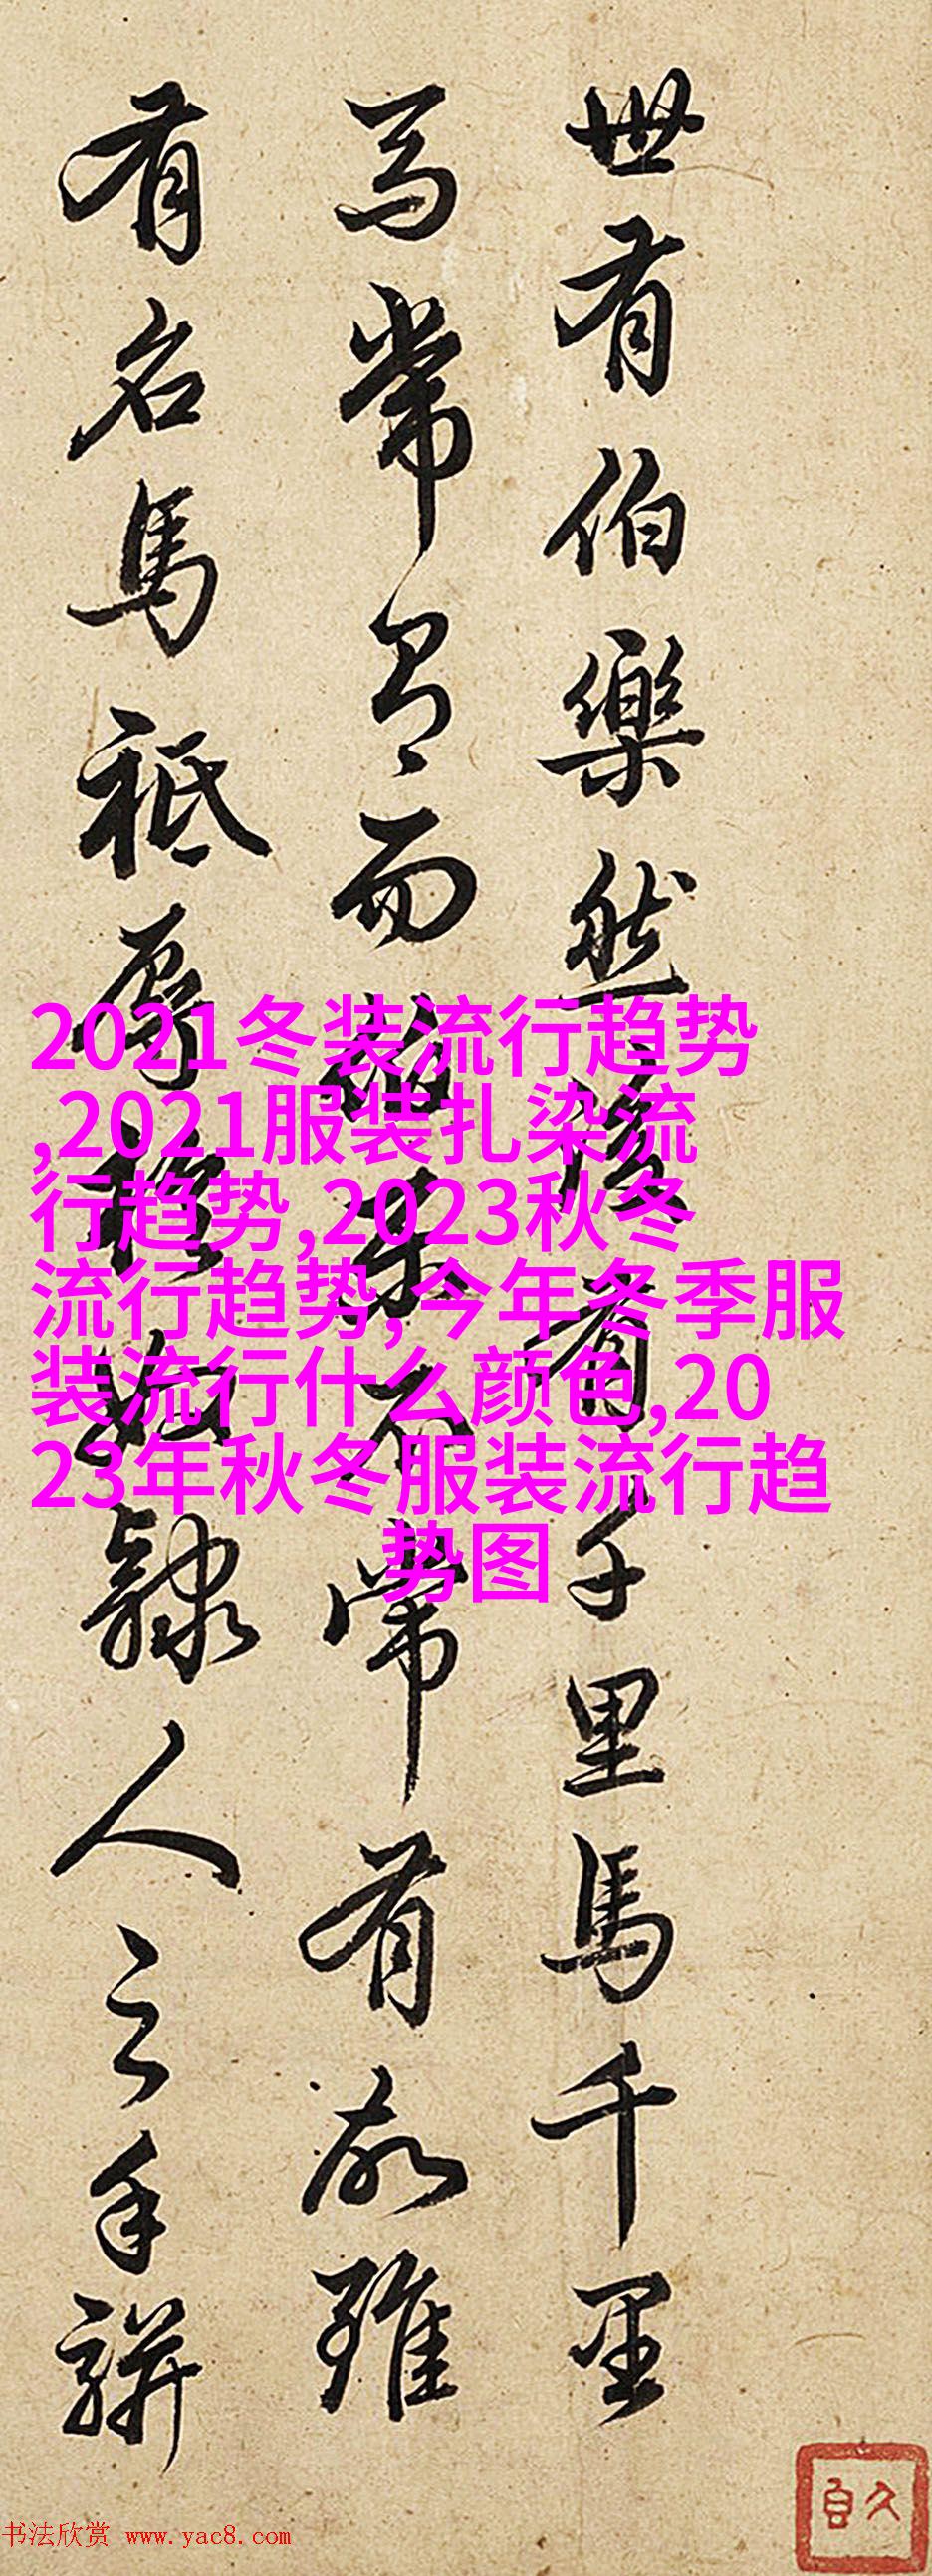 世有伯樂然後有千里馬千里
馬常有而伯樂不常有故雖
有名馬祇辱於奴隸人之手駢
2021冬装流行趋势
,2021服装扎染流
行趋势,2023秋冬
流行趋势,今年冬季服
装流行什么颜色,20
23年秋冬服装流行趋
势图
书法欣赏 www.yac8.com